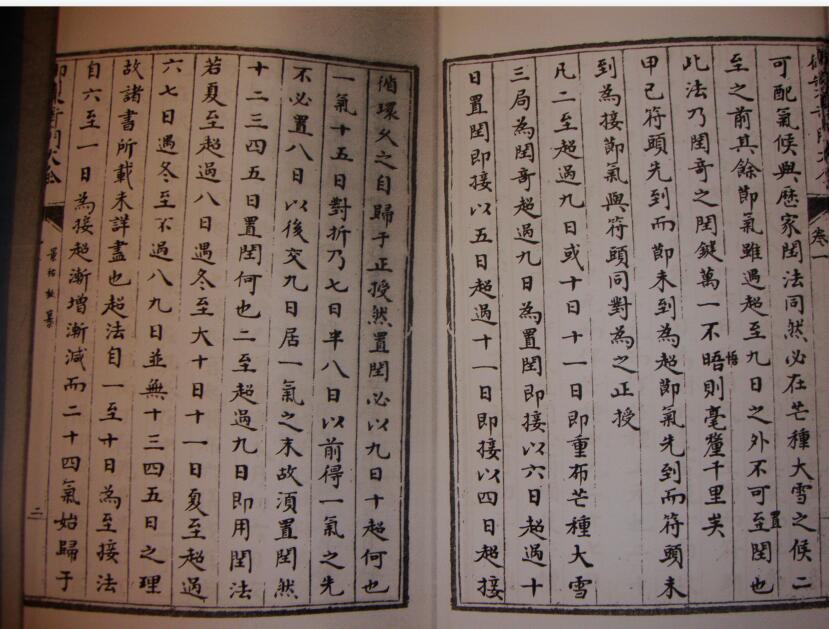 可配氣候與歷家閏法同然必在芒種大雪之候二
至之前其餘節氣雖遇超至九日之外不可至閏也
置
此法乃閏奇之閏鍵萬一不晤則毫釐千里矣
悟
甲己符頭先到而節未到為超節氣先到而符頭未
到為接節氣與符頭同對為之正授
凡二至超過九日或十日十一日即重布芒種大雪
三局為閏奇超過九日為置閏即接以六日超過十
日置閏即接以五日超過十一日即接以四日超接
卷一
循環久之自歸于正授然置閏必以九日十超何也
一氣十五日對折乃七日半八日以前得一氣之先
不必置八日以後交九日居一氣之末故須置閏然
十二三四五日置閏何也二至超過九日即用閏法
若夏至超過八日遇冬至大十日十一日夏至超過
六七日遇冬至不過八九日並無十三四五日之理
故諸書所載未詳盡也超法自一至十日為至接法
自六至一日為接超漸增漸減而二十四氣始歸于
二